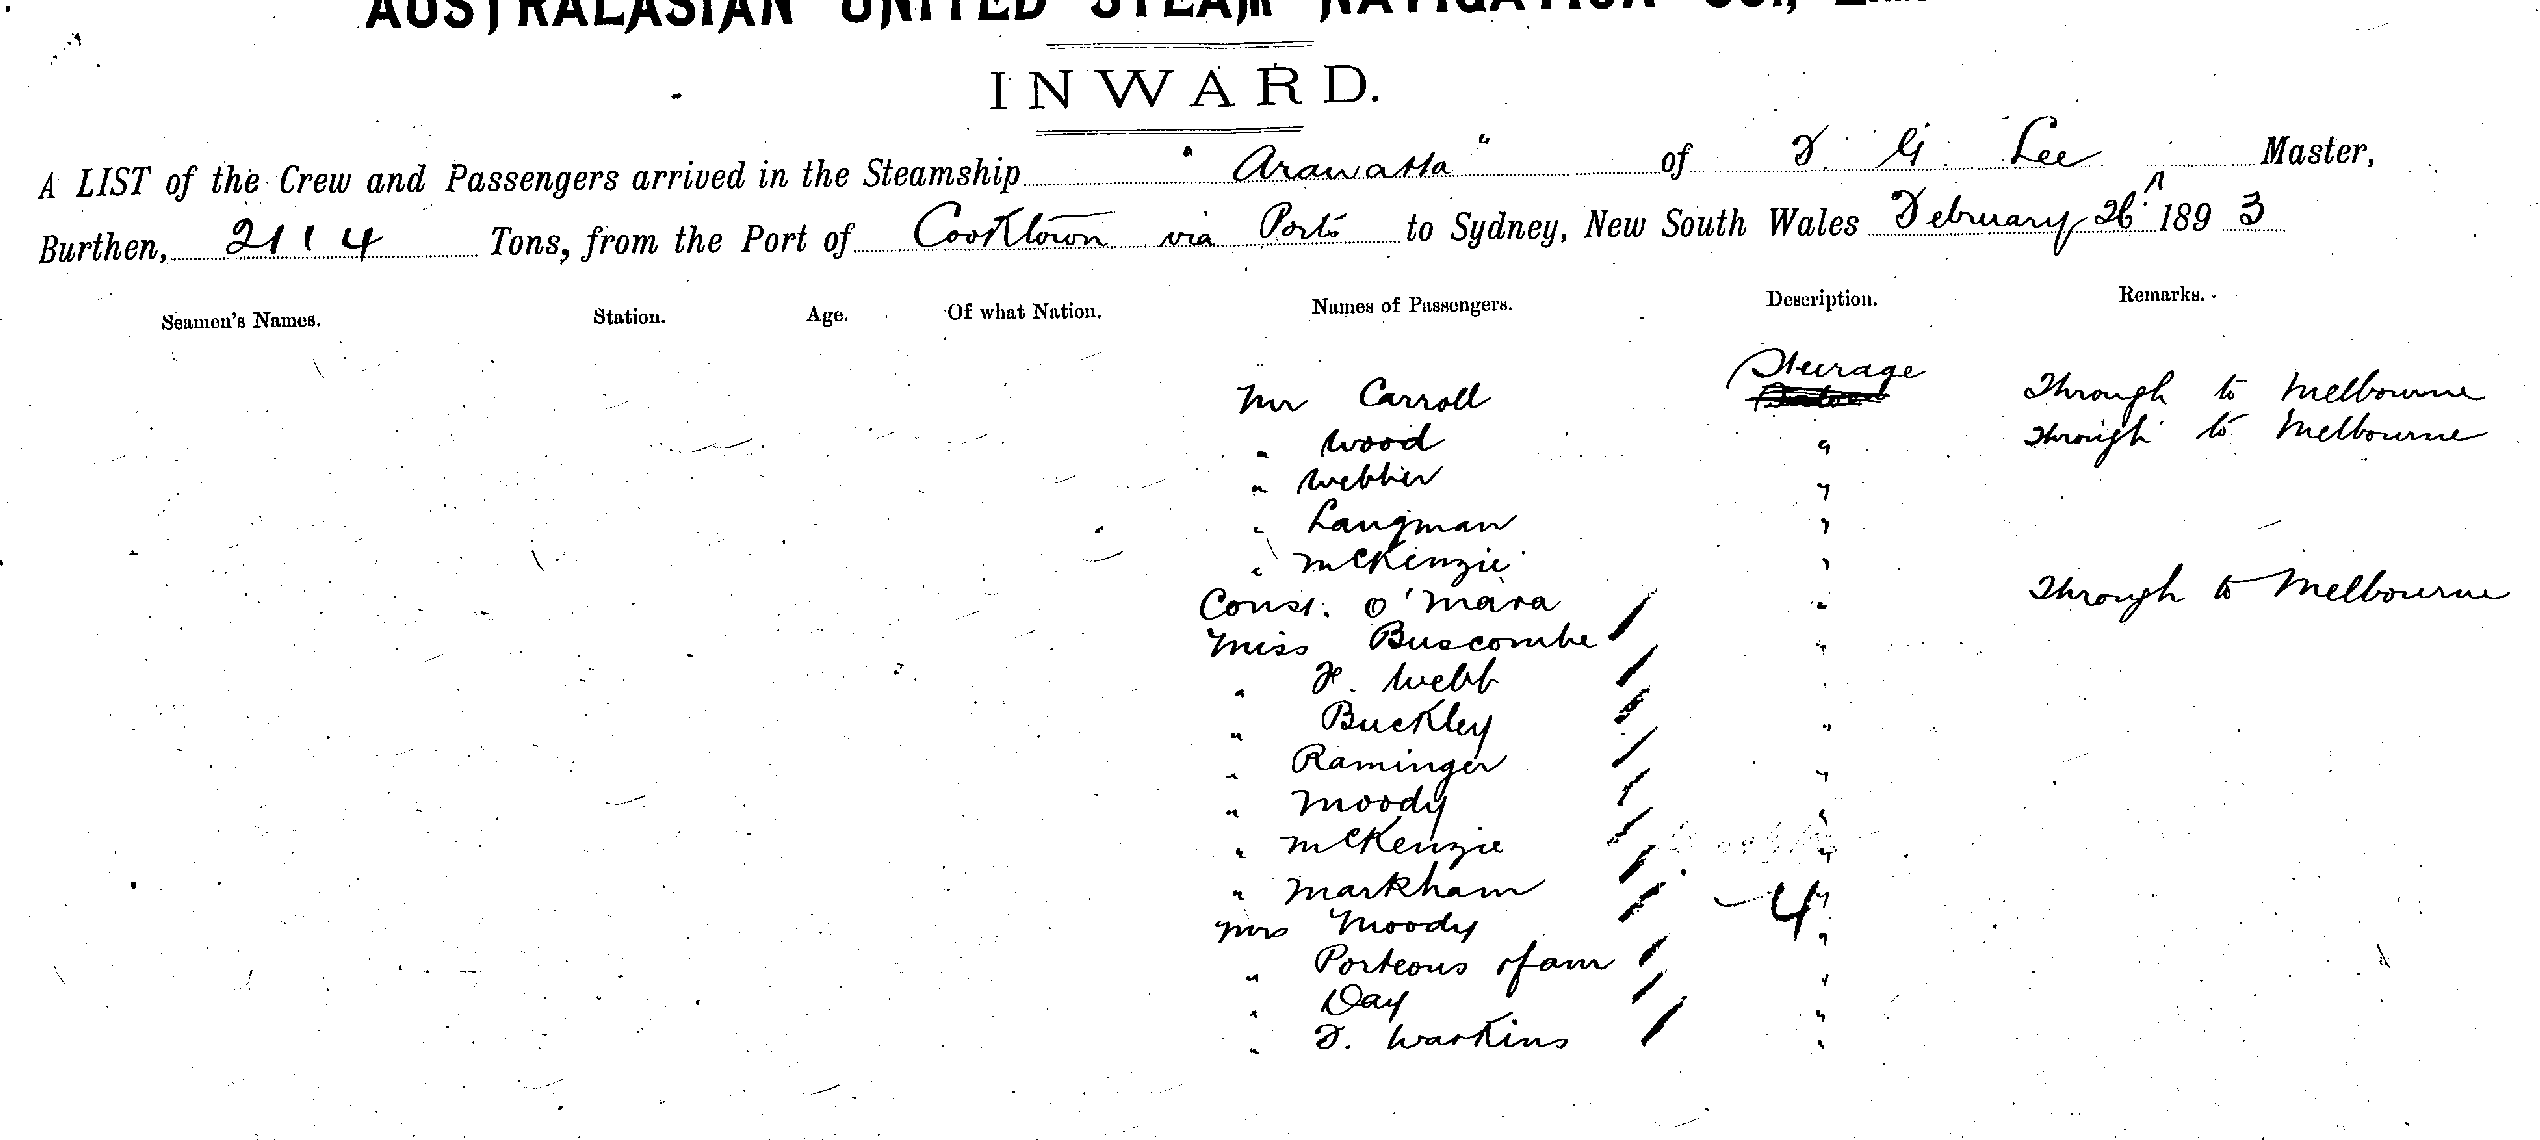 AUSTRALASIAN UNITED STEAM NAVIGATION CO.,
INWARD.
A LIST of the Crew and Passengers arrived in the Steamship "Arawatta" of F. G. Lee Master,
Burthen, 2114 Tons, from the Port of Cooktown via Ports to Sydney, New South Wales February 26 1893
Seamen's Names. Station. Age. Of what Nation. Names of Passengers. Description. Remarks.
Steerage
Mr Carroll Through to Melbourne
" Wood " Through to Melbourne
" Webber "
" Langman "
" McKenzie "
Const. O'Mara " Through to Melbourne
Miss Buscombe "
" F. Webb
" Buckley "
" Raminger "
" Moody "
" McKenzie "
" Markham "
4
Mrs Moody "
" Porteous & fam "
" Day "
" F. Watkins "